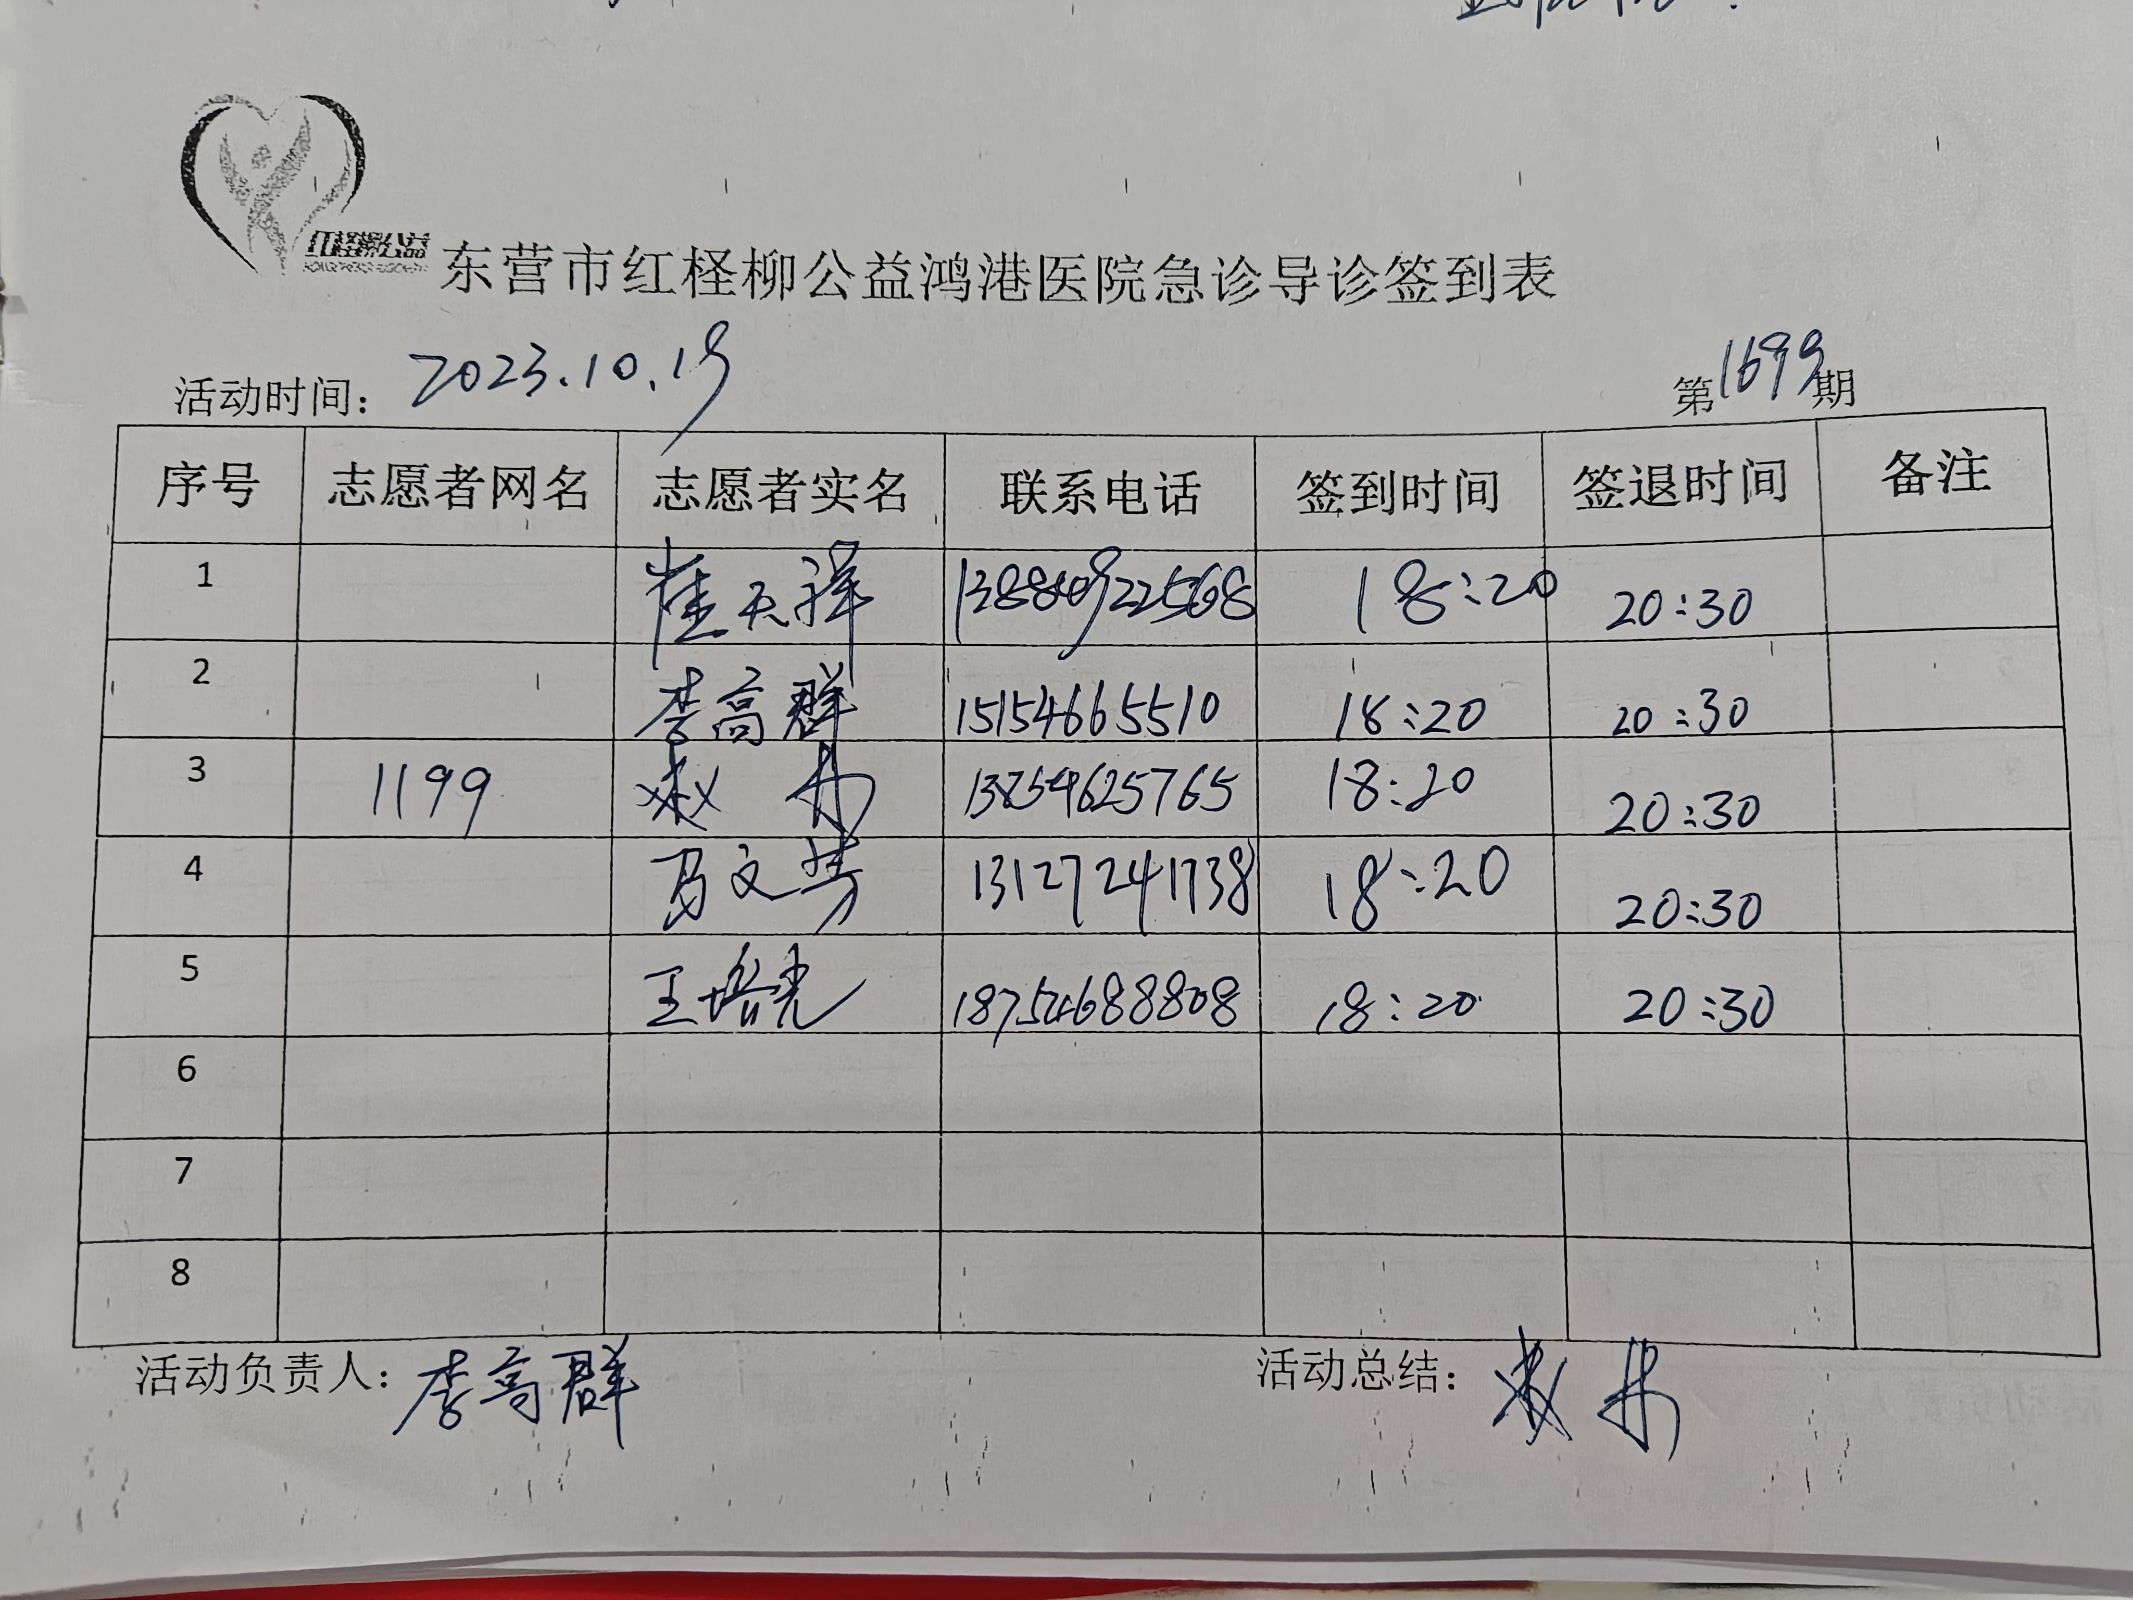 红柽柳公益
东营市红柽柳公益鸿港医院急诊导诊签到表
活动时间：2023.10.19 第1699期
序号 志愿者网名 志愿者实名 联系电话 签到时间 签退时间 备注
1 崔天祥 18:20 20:30
2 李高群 15154665510 18:20 20:30
3 1199 13854625765 18:20 20:30
4 13127241738 18:20 20:30
5 王培光 18754688808 18:20 20:30
6
7
8
活动负责人：李高群 活动总结：